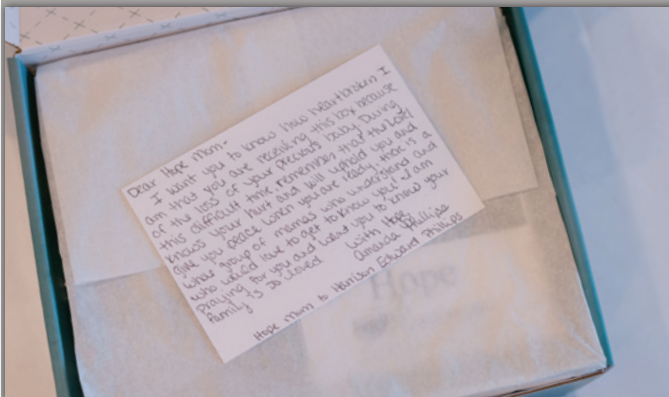 Dear Hope Mom-
I want you to know how heartbroken I
am that you are receiving this box because
of the loss of your precious baby. During
this difficult time, remember that the Lord
knows your hurt and will uphold you and
give you peace. When you are ready, there is a
whole group of mamas who understand and
who would love to get to know you! I am
praying for you and want you to know your
family is so loved.
With Hope,
Amanda Phillips
Hope Mom to Harrison Edward Phillips
Hope